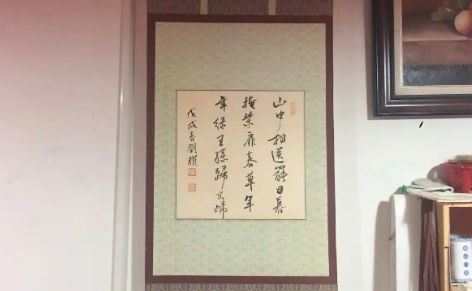 山中相送罷日暮
掩柴扉春草年
年綠王孫歸不歸
戊戌春劉